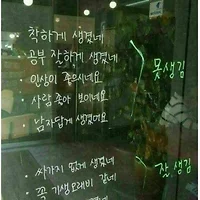 착하게 생겼네
공부 잘하게 생겼네
· 인상이 좋으시네요
· 사람 좋아 보이네요
· 남자답게 생겼어요
못생김
· 싸가지 없게 생겼네
· 꼭 기생오래비 같네
잘생김